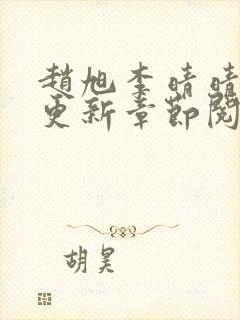 趙旭李晴晴
更新章節閱
胡昊